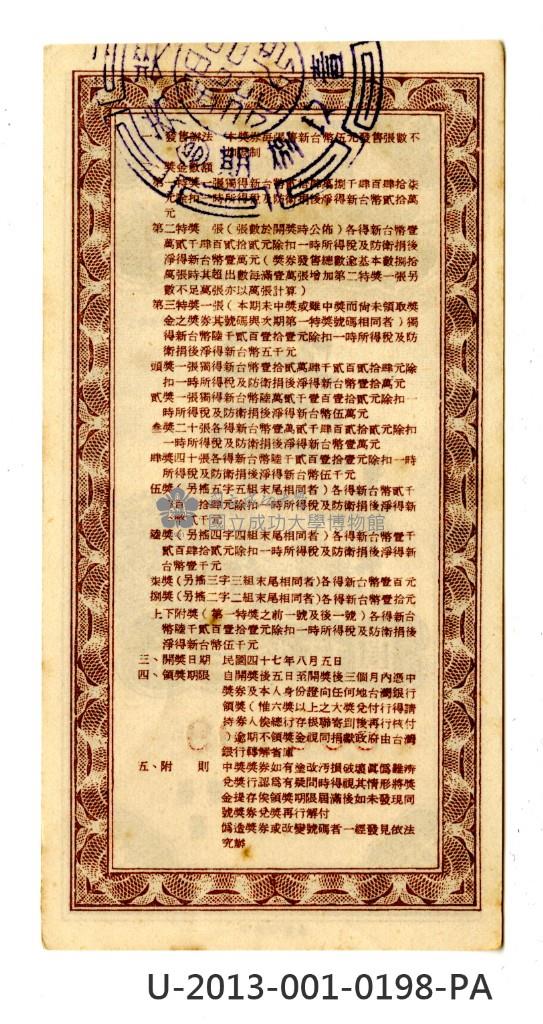 發售辦法 本獎券每張售新台幣伍元發售張數不
加限制
獎金數額
第一特獎一張獨得新台幣貳拾肆萬捌千肆百肆拾柒
元除扣一時所得稅及防衛捐後淨得新台幣貳拾萬
元
第二特獎 張(張數於開獎時公佈)各得新台幣壹
萬貳千肆百貳拾貳元除扣一時所得稅及防衛捐後
淨得新台幣壹萬元(獎券發售總數逾基本數捌拾
萬張時其超出數每滿壹萬張增加第二特獎一張另
數不足萬張亦以萬張計算)
第三特獎一張(本期未中獎或雖中獎而尚未領取獎
金之獎券其號碼與次期第一特獎號碼相同者)獨
得新台幣陸千貳百壹拾壹元除扣一時所得稅及防
衛捐後淨得新台幣五千元
頭獎一張獨得新台幣壹拾貳萬肆千貳百貳拾肆元除
扣一時所得稅及防衛捐後淨得新台幣壹拾萬元
貳獎一張獨得新台幣陸萬貳千壹百壹拾貳元除扣一
時所得稅及防衛捐後淨得新台幣伍萬元
叁獎二十張各得新台幣壹萬貳千肆百貳拾貳元除扣
一時所得稅及防衛捐後淨得新台幣壹萬元
肆獎四十張各得新台幣陸千貳百壹拾壹元除扣一時
所得稅及防衛捐後淨得新台幣伍千元
伍獎(另搖五字五組末尾相同者)各得新台幣貳千
肆百捌拾肆元除扣一時所得稅及防衛捐後淨得新
台幣貳千元
國立成功大學博物館
陸獎(另搖四字四組末尾相同者)各得新台幣壹千
貳百肆拾貳元除扣一時所得稅及防衛捐後淨得新
台幣壹千元
柒獎(另搖三字三組末尾相同者)各得新台幣壹百元
捌獎(另搖二字二組末尾相同者)各得新台幣壹拾元
上下附獎(第一特獎之前一號及後一號)各得新台
幣陸千貳百壹拾壹元除扣一時所得稅及防衛捐後
淨得新台幣伍千元
三、開獎日期 民國四十七年八月五日
四、領獎期限 自開獎後五日至開獎後三個月內憑中
獎券及本人身份證向任何地台灣銀行
領獎(惟六獎以上之大獎兌付行得請
持券人俟總行存根聯寄到後再行核付
)逾期不領獎金視同捐獻政府由台灣
銀行轉解省庫
五、附 則 中獎獎券如有塗改汚損破壞眞僞難辨
兌獎行認爲有疑問時得視其情形將獎
金提存俟領獎期限屆滿後如未發現同
號獎券兌獎再行解付
僞造獎券或改變號碼者一經發見依法
究辦
U-2013-001-0198-PA